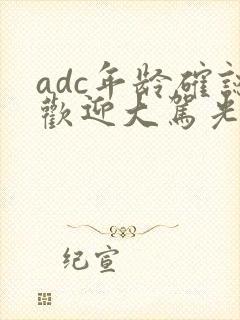 adc年龄確認
歡迎大駕光
纪宣